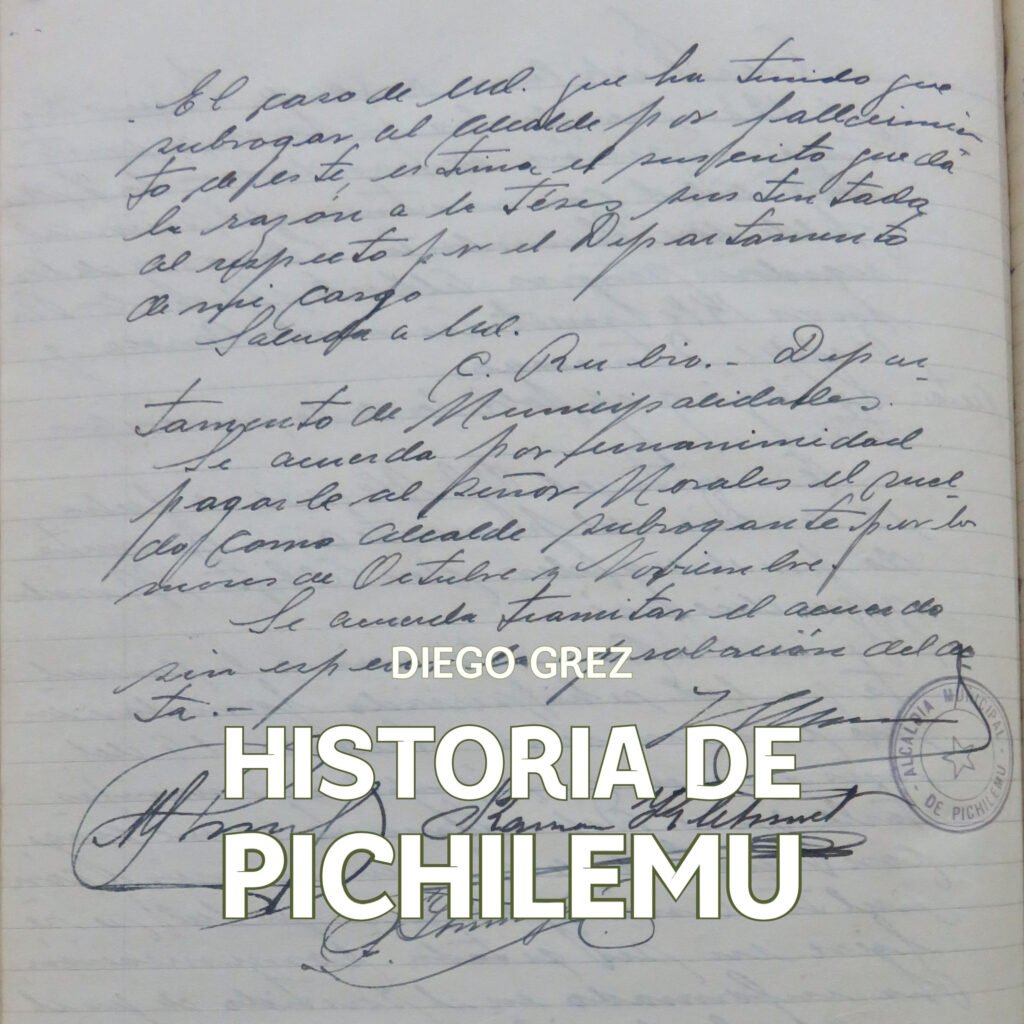 El caso de Ud. que ha tenido que
subrogar al Alcalde por fallecimien
to de este, estima el suscrito que dá
la razón a la Tésis sustentada
al respecto por el Departamento
de mi cargo
Saluda a Ud.
C. Rubio.- Depar-
tamento de Municipalidades.
Se acuerda por unanimidad
pagarle al señor Morales el suel-
do como Alcalde subrogante por los
meses de Octubre y Noviembre.
Se acuerda tramitar el acuerdo
sin esperar la aprobación del ac
ta.-
DIEGO GREZ
HISTORIA DE
PICHILEMU
ALCALDIA MUNICIPAL
DE PICHILEMU